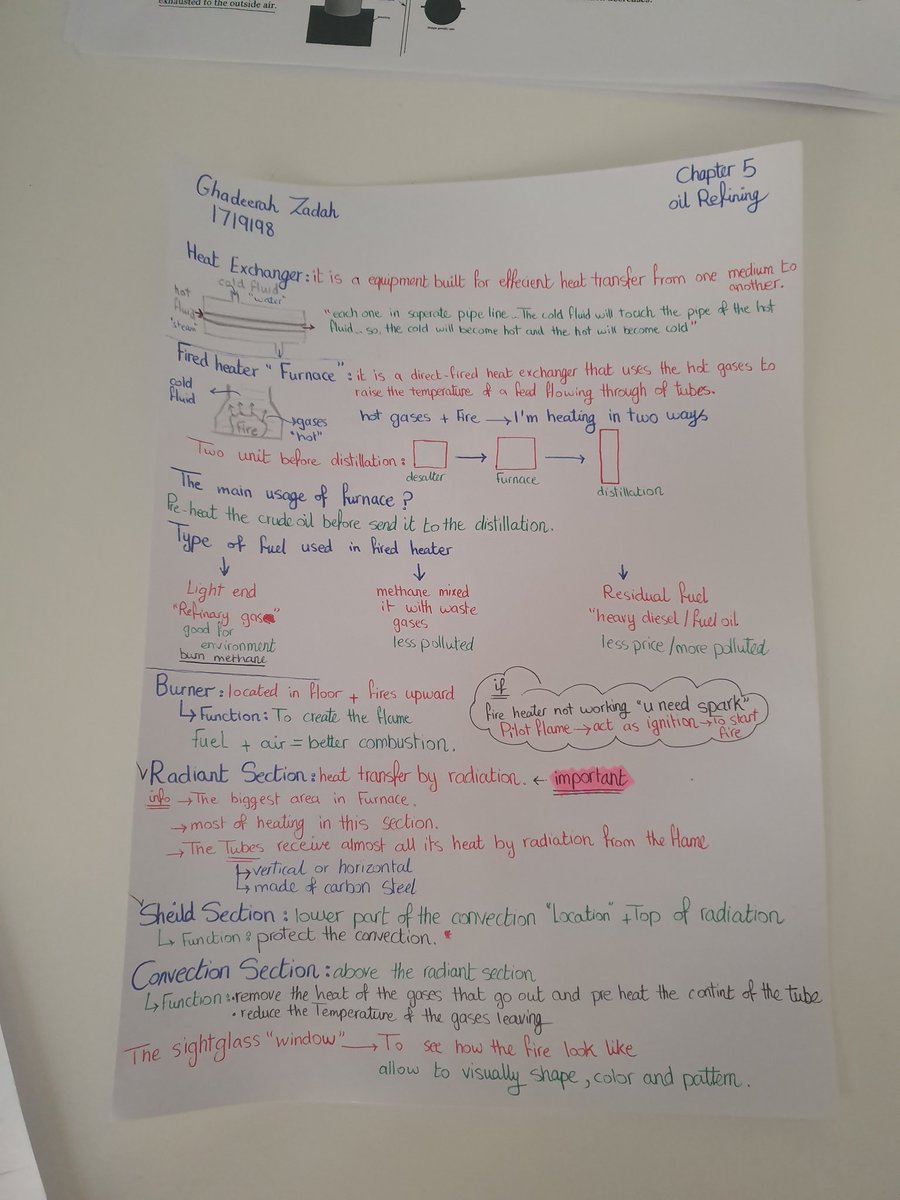 exhausted to the outside air.
Ghadeerah Zadah
1719198
Chapter 5
oil Refining
Heat Exchanger: it is a equipment built for effecient heat transfer from one medium to
another.
cold fluid
"water"
hot
fluid
"steam"
"each one in saperate pipe line... The cold fluid will touch the pipe of the hot
fluid... so, the cold will become hot and the hot will become cold"
Fired heater "Furnace": it is a direct-fired heat exchanger that uses the hot gases to
raise the temperature of a feed flowing through of tubes.
cold
fluid
Fire
gases
"hot"
hot gases + Fire → I'm heating in two ways
Two unit before distillation:
desalter
Furnace
distillation
The main usage of furnace?
Pre-heat the crude oil before send it to the distillation.
Type of fuel used in fired heater
Light end
"Refinary gas"
good for
environment
burn methane
methane mixed
it with waste
gases
less polluted
Residual fuel
"heavy diesel / fuel oil
less price / more polluted
Burner: located in floor + fires upward
↳ Function: To create the flame
fuel + air = better combustion.
if
fire heater not working "u need spark"
Pilot flame → act as ignition → To start
fire
Radiant Section: heat transfer by radiation. ← important
info → The biggest area in Furnace.
→ most of heating in this section.
→ The Tubes receive almost all its heat by radiation from the flame
↳ vertical or horizontal
↳ made of carbon steel
Sheild Section: lower part of the convection "Location" + Top of radiation
↳ Function: protect the convection.
Convection Section: above the radiant section
↳ Function: • remove the heat of the gases that go out and pre heat the contint of the tube
• reduce the Temperature of the gases leaving
The sightglass "window" → To see how the fire look like
allow to visually shape, color and pattern.